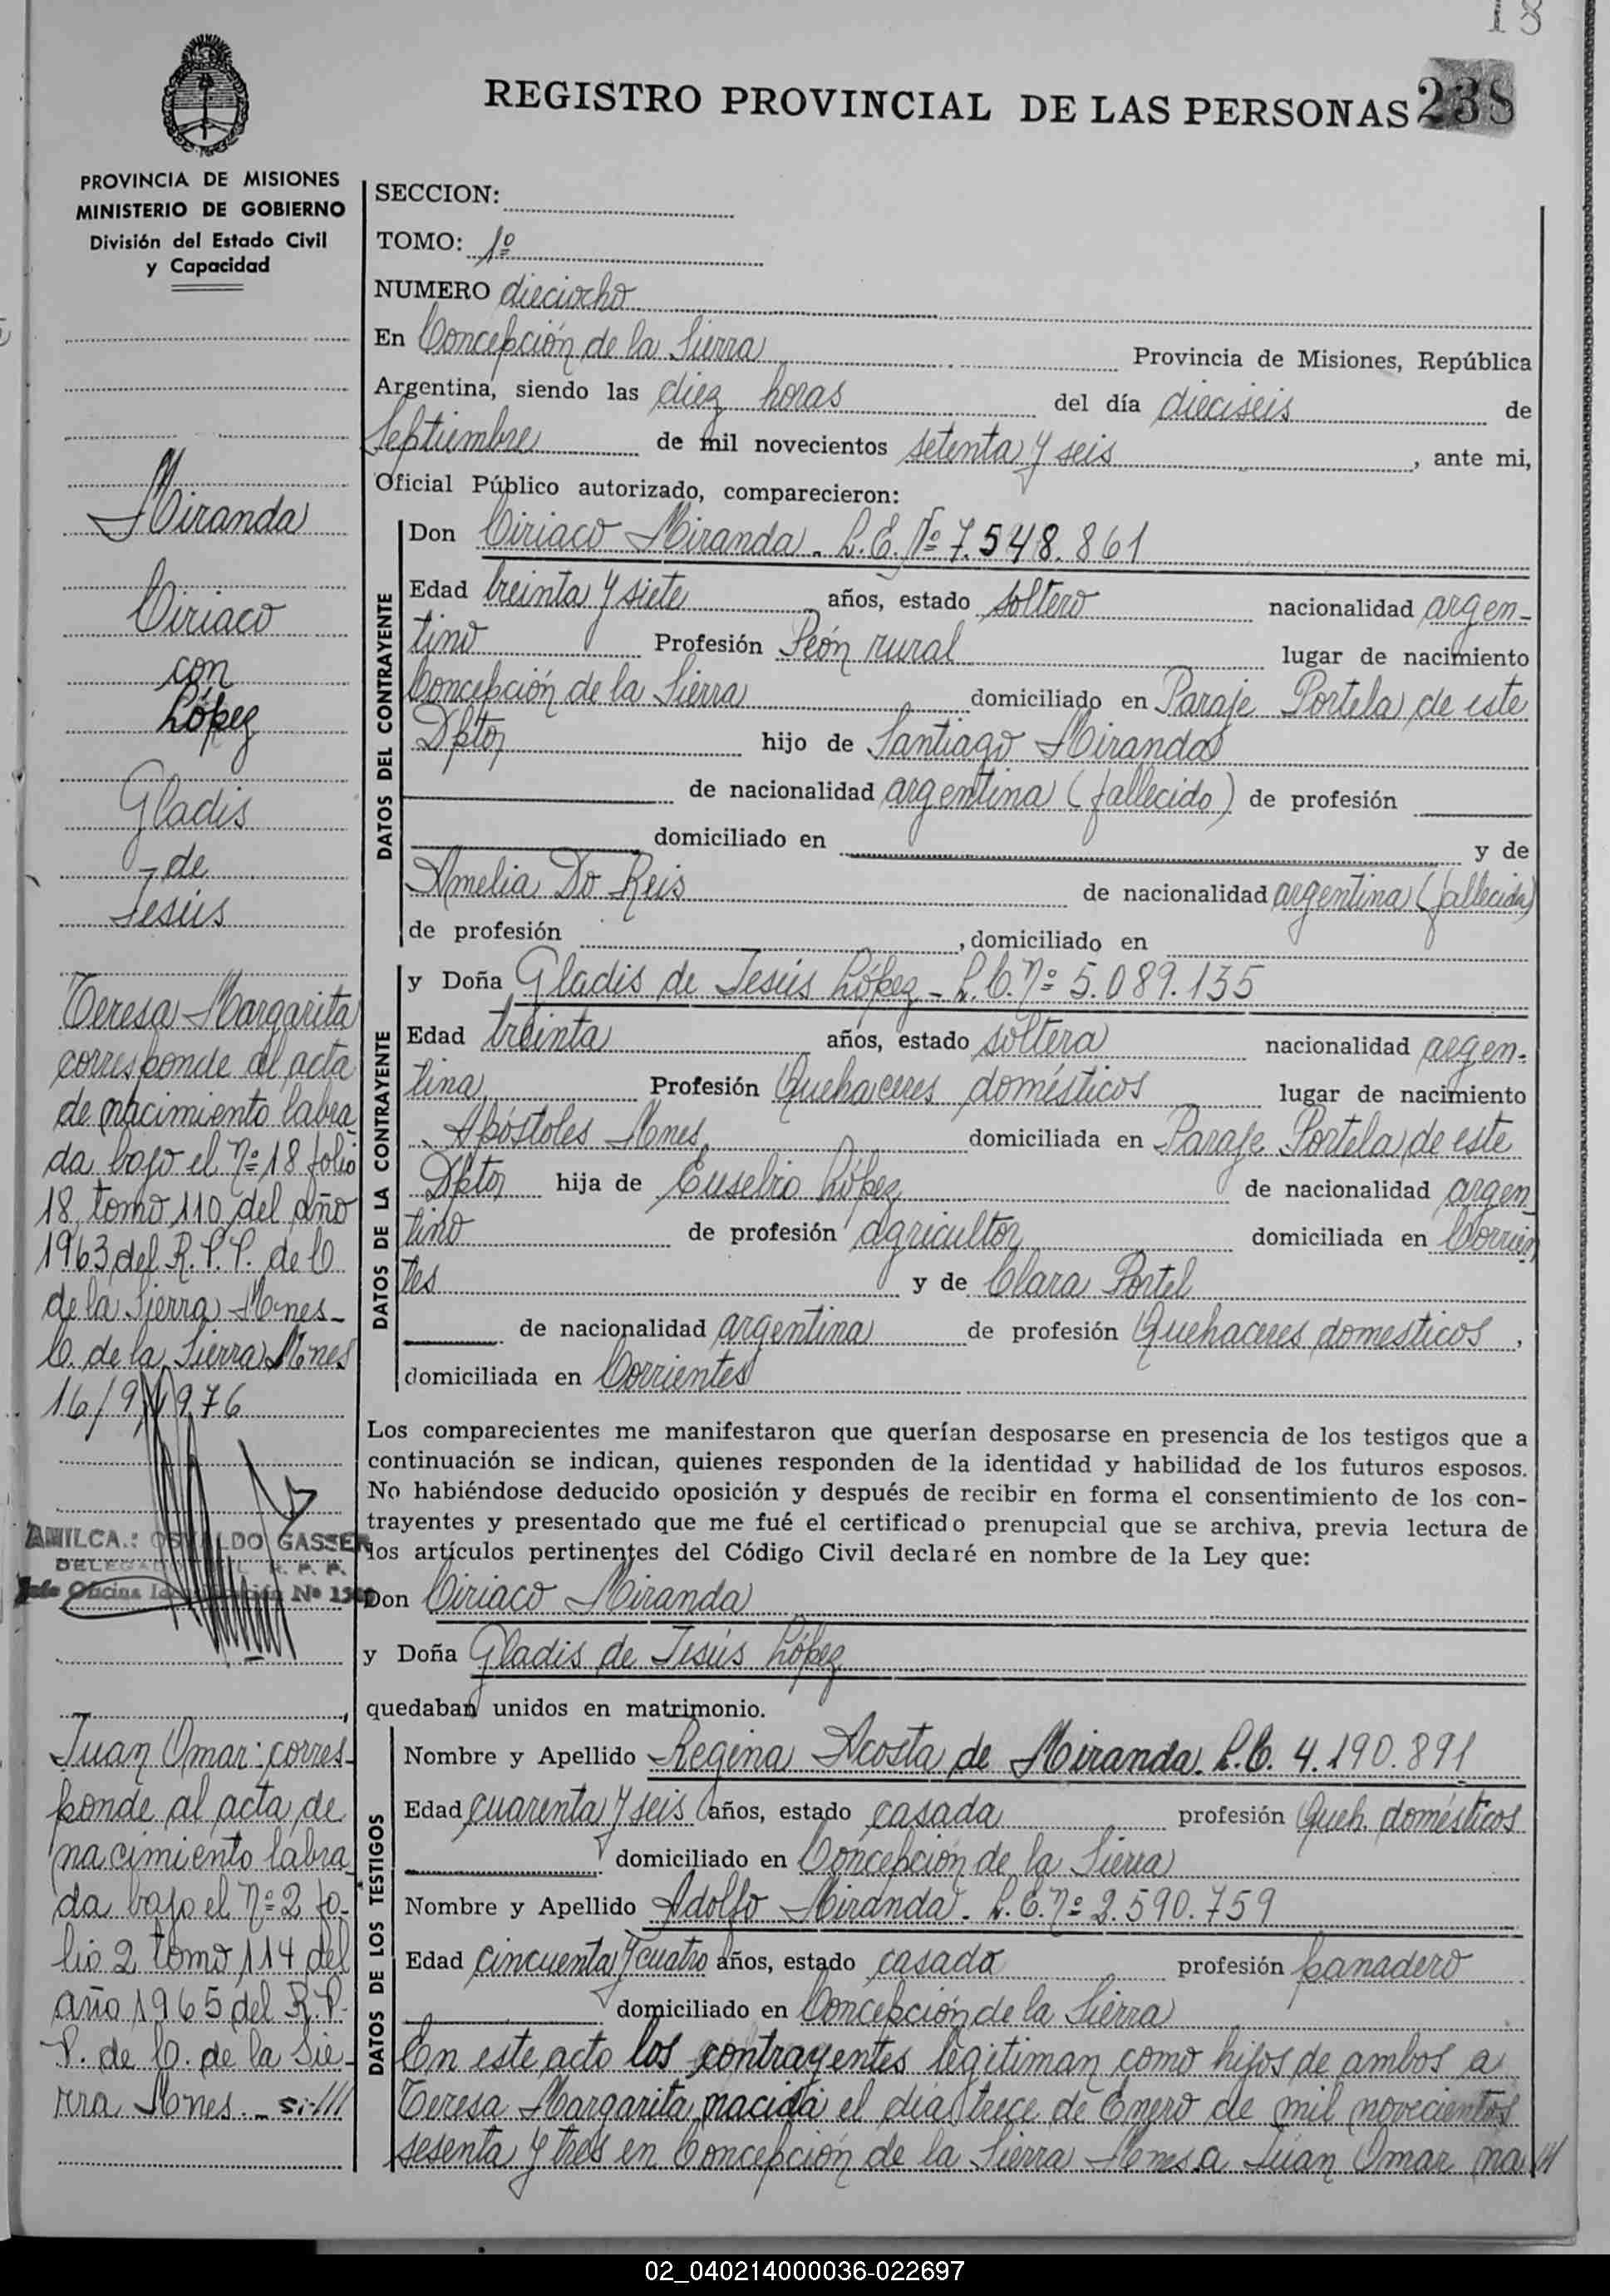 18
REGISTRO PROVINCIAL DE LAS PERSONAS 238
PROVINCIA DE MISIONES
MINISTERIO DE GOBIERNO
División del Estado Civil
y Capacidad
Miranda
Ciriaco
con
López
Gladis
de
Jesús
Teresa Margarita
corresponde al acta
de nacimiento labra
da bajo el Nº 18 folio
18, tomo 110 del año
1963 del R.P.P. de C.
de la Sierra Mnes-
C. de la Sierra Mnes
16/9/1976
OSVALDO GASSER
R. P. P.
Juan Omar: corres-
ponde al acta de
nacimiento labra
da bajo el Nº 2 fo-
lio 2 tomo 114 del
año 1965 del R.P.
P. de C. de la Sie-
rra Mnes. - si-///
SECCION:
TOMO: 1º
NUMERO dieciocho
En Concepción de la Sierra Provincia de Misiones, República
Argentina, siendo las diez horas del día dieciseis de
Septiembre de mil novecientos setenta y seis, ante mi,
Oficial Público autorizado, comparecieron:
DATOS DEL CONTRAYENTE
Don Ciriaco Miranda. L.E. Nº 7.548.861
Edad treinta y siete años, estado soltero nacionalidad argen-
tino Profesión Peón rural lugar de nacimiento
Concepción de la Sierra domiciliado en Paraje Portela de este
Dpto, hijo de Santiago Miranda
de nacionalidad argentina (fallecido) de profesión
domiciliado en y de
Amelia Do Reis de nacionalidad argentina (fallecida)
de profesión , domiciliado en
DATOS DE LA CONTRAYENTE
y Doña Gladis de Jesús López - L.C. Nº 5.089.135
Edad treinta años, estado soltera nacionalidad argen-
tina, Profesión Quehaceres domésticos lugar de nacimiento
Apóstoles Mnes, domiciliada en Paraje Portela de este
Dpto, hija de Eusebio López, de nacionalidad argen
tino de profesión agricultor domiciliada en Corrien
tes y de Clara Portel
de nacionalidad argentina de profesión Quehaceres domesticos,
domiciliada en Corrientes
Los comparecientes me manifestaron que querían desposarse en presencia de los testigos que a
continuación se indican, quienes responden de la identidad y habilidad de los futuros esposos.
No habiéndose deducido oposición y después de recibir en forma el consentimiento de los con-
trayentes y presentado que me fué el certificado prenupcial que se archiva, previa lectura de
los artículos pertinentes del Código Civil declaré en nombre de la Ley que:
Don Ciriaco Miranda
y Doña Gladis de Jesús López
quedaban unidos en matrimonio.
DATOS DE LOS TESTIGOS
Nombre y Apellido Regina Acosta de Miranda. L.C. 4.190.891
Edad cuarenta y seis años, estado casada profesión Queh. domésticos
domiciliado en Concepción de la Sierra
Nombre y Apellido Adolfo Miranda. L.E. Nº 2.590.759
Edad cincuenta y cuatro años, estado casado profesión panadero
domiciliado en Concepción de la Sierra
En este acto los contrayentes legitiman como hijos de ambos a
Teresa Margarita nacida el día trece de Enero de mil novecientos
sesenta y tres en Concepción de la Sierra Mnes a Juan Omar na///
02_040214000036-022697